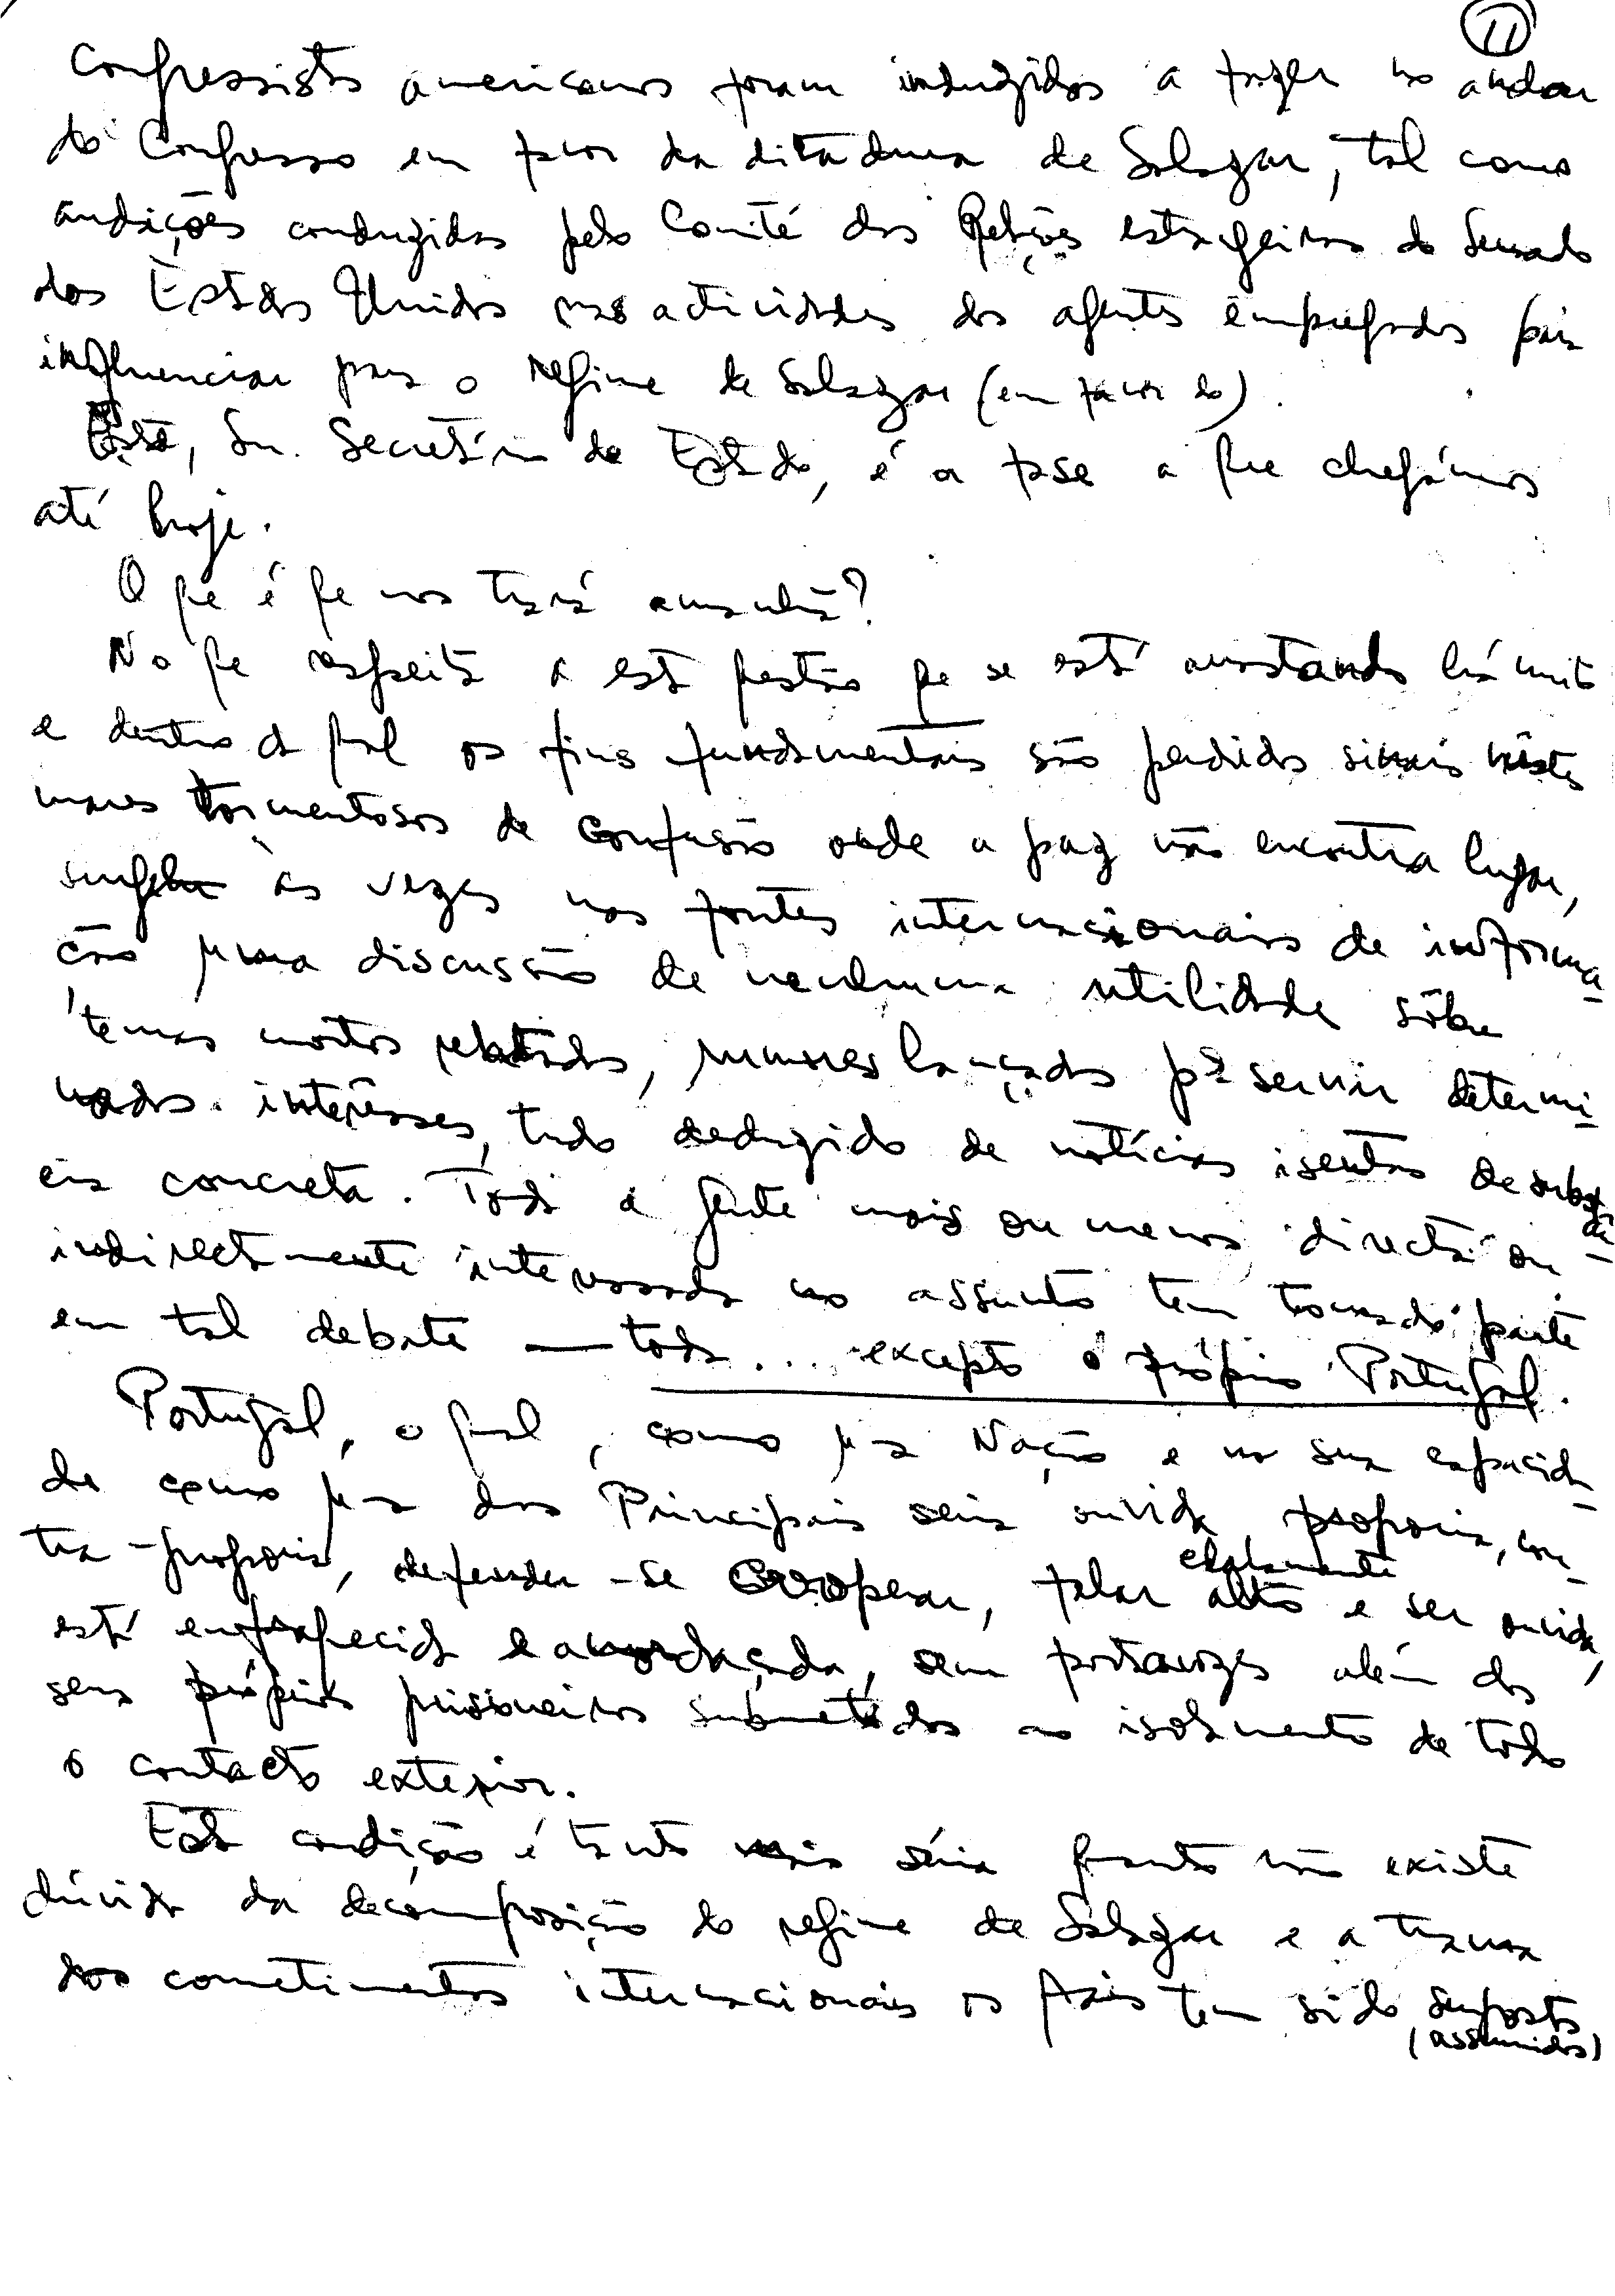 11
Congressistas americanos foram induzidos a fazer no andar
do Congresso em favor da ditadura de Salazar, tal como
audições conduzidas pelo Comité das Relações estrangeiras do Senado
dos Estados Unidos nas actividades dos agentes empregados para
influenciar para o regime de Salazar (em favor do).
Esta, Sr. Secretário de Estado, é a fase a que chegámos
até hoje.
O que é que nos trará amanhã?
No que respeita a esta questão que se está arrastando há muito
e dentro da qual os fins fundamentais são perdidos sinais nestes
mares tormentosos de confusão onde a paz não encontra lugar,
surge às vezes nas fontes internacionais de informa-
ção uma discussão de nenhuma utilidade sôbre
temas mortos, rumores lançados pª servir determi-
nados interêsses, tudo deduzido de notícias isentas de substân-
cia concreta. Toda a gente mais ou menos directa ou
indirectamente interessada no assunto tem tomado parte
em tal debate — toda... excepto o próprio Portugal.
Portugal, o qual, como uma Nação e na sua capacida-
de como uma das Principais seria ouvida, proporia, con-
tra-proporia, defender-se cooperar, falar alto claramente e ser ouvida,
está enfraquecida e amordaçada, sem portavozes além dos
seus próprios prisioneiros submetidos ao isolamento de todo
o contacto exterior.
Esta condição é tanto mais séria quanto não existe
dúvida da decomposição do regime de Salazar e a trama
dos cometimentos internacionais os quais tem sido supostos
(assumidos)